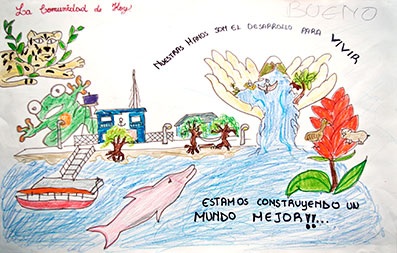 La Comunidad de Hoy
BUENO
NUESTRAS MANOS SON EL DESARROLLO PARA VIVIR
ESTAMOS CONSTRUYENDO UN
MUNDO MEJOR!!...